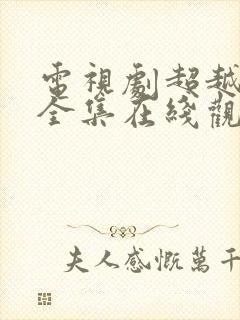 電視劇超越
全集在綫觀
夫人感慨萬千